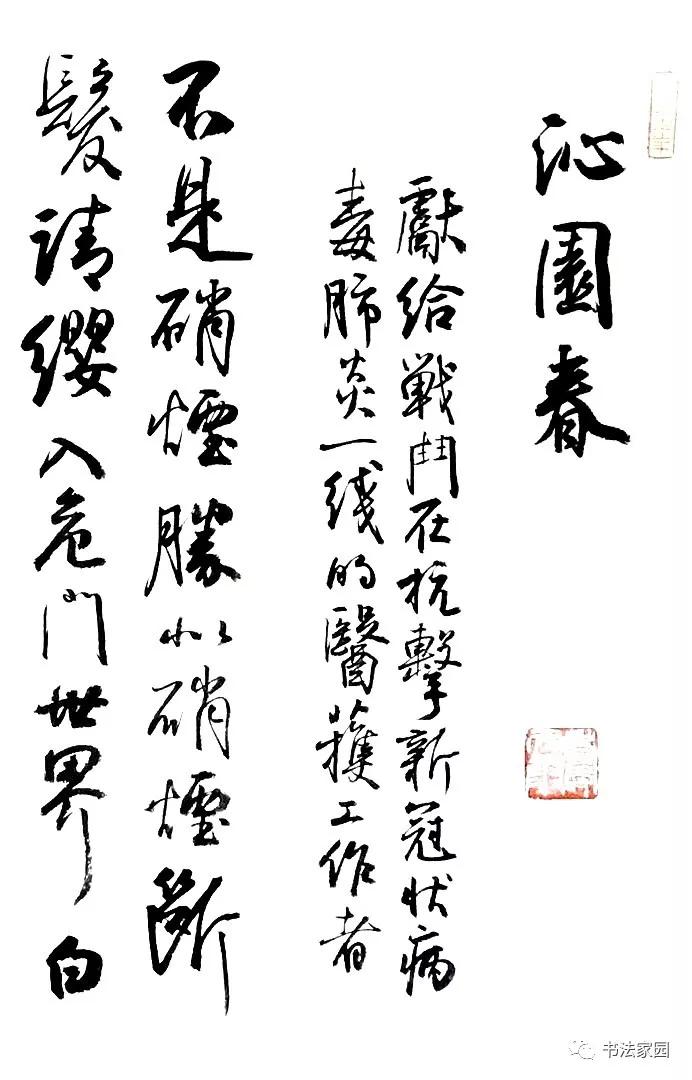 沁園春
獻給戰鬥在抗擊新冠状病
毒肺炎一线的醫護工作者
不是硝煙勝似硝煙断
髮請纓入危門世界白
书法家园